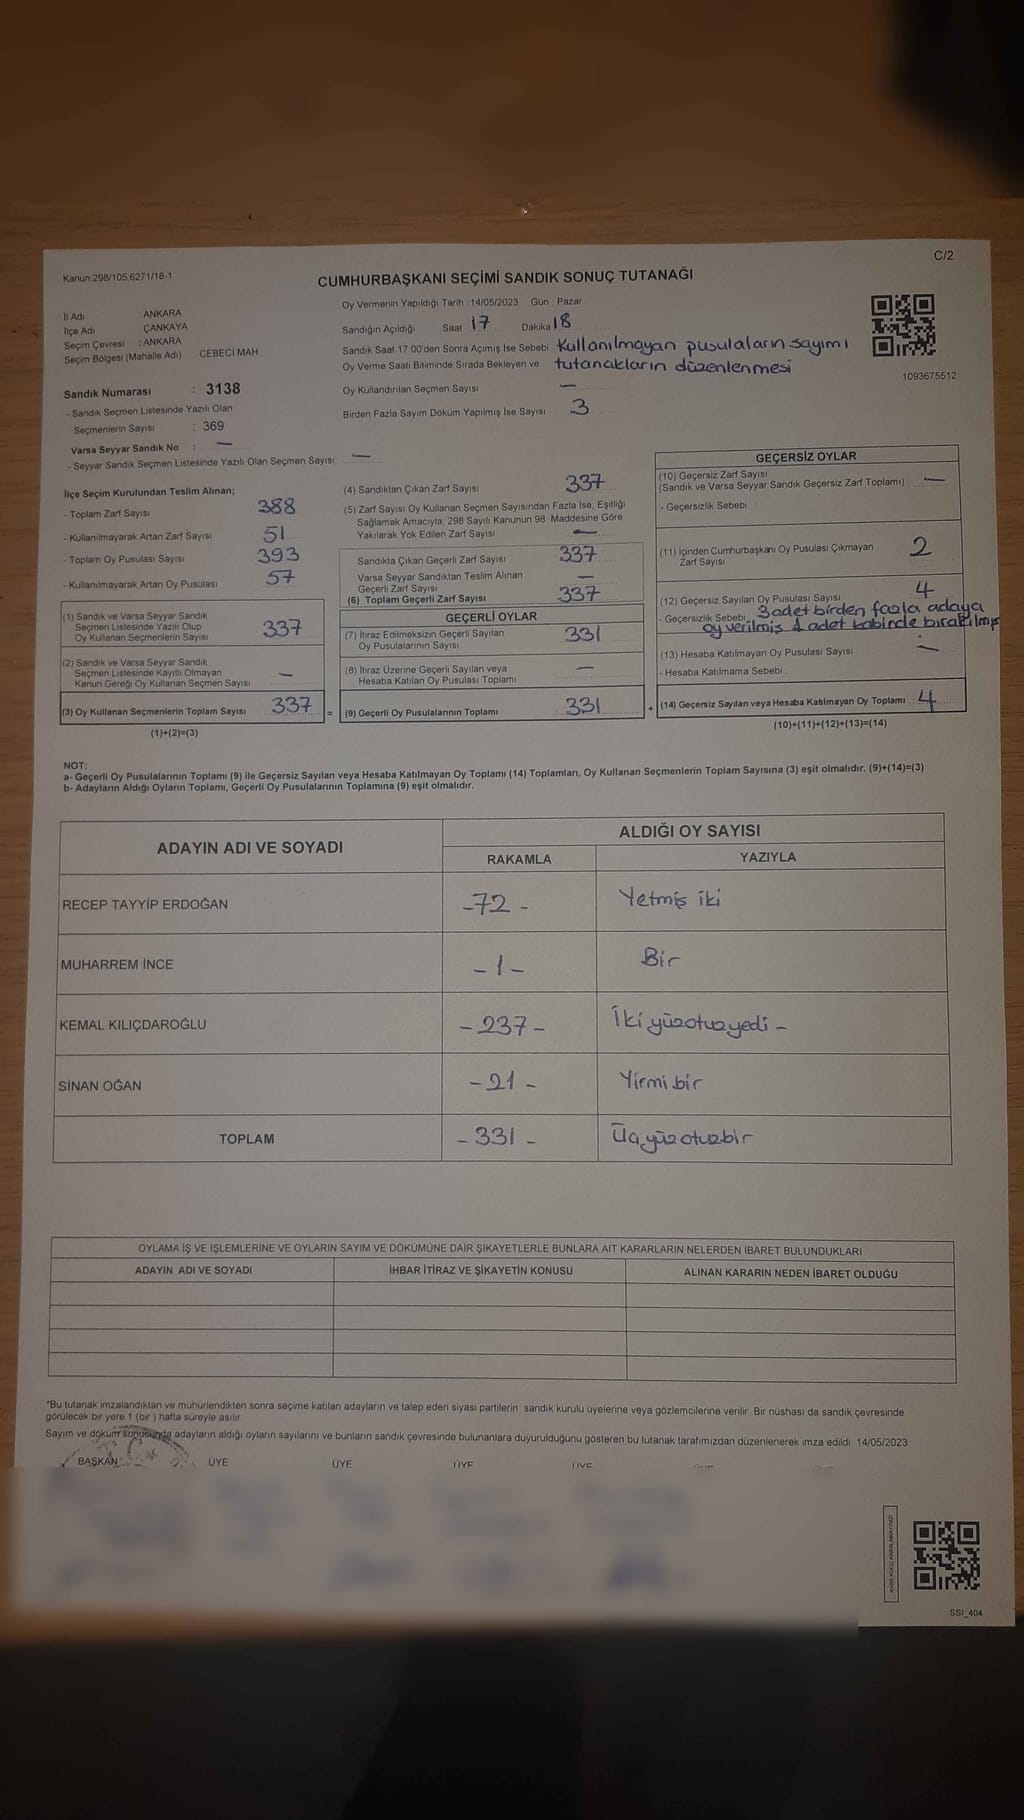 C/2
Kanun:298/105,6271/18-1
CUMHURBAŞKANI SEÇİMİ SANDIK SONUÇ TUTANAĞI
İl Adı ANKARA
İlçe Adı ÇANKAYA
Seçim Çevresi : ANKARA
Seçim Bölgesi (Mahalle Adı) CEBECİ MAH
Sandık Numarası : 3138
- Sandık Seçmen Listesinde Yazılı Olan
Seçmenlerin Sayısı : 369
Varsa Seyyar Sandık No : —
- Seyyar Sandık Seçmen Listesinde Yazılı Olan Seçmen Sayısı: —
Oy Vermenin Yapıldığı Tarih :14/05/2023 Gün : Pazar
Sandığın Açıldığı Saat 17 Dakika 18
Sandık Saat 17:00'den Sonra Açımış İse Sebebi : Kullanılmayan pusulaların sayımı
Oy Verme Saati Bitiminde Sırada Bekleyen ve tutanakların düzenlenmesi
Oy Kullandırılan Seçmen Sayısı —
Birden Fazla Sayım Döküm Yapılmış İse Sayısı 3
1093675512
İlçe Seçim Kurulundan Teslim Alınan;
- Toplam Zarf Sayısı 388
- Kullanılmayarak Artan Zarf Sayısı 51
- Toplam Oy Pusulası Sayısı 393
- Kullanılmayarak Artan Oy Pusulası 57
(1) Sandık ve Varsa Seyyar Sandık
Seçmen Listesinde Yazılı Olup
Oy Kullanan Seçmenlerin Sayısı 337
(2) Sandık ve Varsa Seyyar Sandık
Seçmen Listesinde Kayıtlı Olmayan
Kanun Gereği Oy Kullanan Seçmen Sayısı —
(3) Oy Kullanan Seçmenlerin Toplam Sayısı 337 =
(1)+(2)=(3)
(4) Sandıktan Çıkan Zarf Sayısı 337
(5) Zarf Sayısı Oy Kullanan Seçmen Sayısından Fazla İse, Eşitliği
Sağlamak Amacıyla; 298 Sayılı Kanunun 98. Maddesine Göre
Yakılarak Yok Edilen Zarf Sayısı —
Sandıkta Çıkan Geçerli Zarf Sayısı 337
Varsa Seyyar Sandıktan Teslim Alınan
Geçerli Zarf Sayısı —
(6) Toplam Geçerli Zarf Sayısı 337
GEÇERLİ OYLAR
(7) İtiraz Edilmeksizin Geçerli Sayılan
Oy Pusulalarının Sayısı 331
(8) İtiraz Üzerine Geçerli Sayılan veya
Hesaba Katılan Oy Pusulası Toplamı —
(9) Geçerli Oy Pusulalarının Toplamı 331 +
GEÇERSİZ OYLAR
(10) Geçersiz Zarf Sayısı
(Sandık ve Varsa Seyyar Sandık Geçersiz Zarf Toplamı) : —
- Geçersizlik Sebebi
(11) İçinden Cumhurbaşkanı Oy Pusulası Çıkmayan 2
Zarf Sayısı
(12) Geçersiz Sayılan Oy Pusulası Sayısı 4
- Geçersizlik Sebebi 3 adet birden fazla adaya
oy verilmiş 1 adet kabinde bırakılmış
(13) Hesaba Katılmayan Oy Pusulası Sayısı —
- Hesaba Katılmama Sebebi
(14) Geçersiz Sayılan veya Hesaba Katılmayan Oy Toplamı : 4
(10)+(11)+(12)+(13)=(14)
NOT:
a- Geçerli Oy Pusulalarının Toplamı (9) ile Geçersiz Sayılan veya Hesaba Katılmayan Oy Toplamı (14) Toplamları, Oy Kullanan Seçmenlerin Toplam Sayısına (3) eşit olmalıdır. (9)+(14)=(3)
b- Adayların Aldığı Oyların Toplamı, Geçerli Oy Pusulalarının Toplamına (9) eşit olmalıdır.
ADAYIN ADI VE SOYADI ALDIĞI OY SAYISI
RAKAMLA YAZIYLA
RECEP TAYYİP ERDOĞAN -72- Yetmiş iki
MUHARREM İNCE -1- Bir
KEMAL KILIÇDAROĞLU -237- İkiyüzotuzyedi -
SİNAN OĞAN -21- Yirmi bir
TOPLAM -331- Üçyüzotuzbir
OYLAMA İŞ VE İŞLEMLERİNE VE OYLARIN SAYIM VE DÖKÜMÜNE DAİR ŞİKAYETLERLE BUNLARA AİT KARARLARIN NELERDEN İBARET BULUNDUKLARI
ADAYIN ADI VE SOYADI İHBAR İTİRAZ VE ŞİKAYETİN KONUSU ALINAN KARARIN NEDEN İBARET OLDUĞU
*Bu tutanak imzalandıktan ve mühürlendikten sonra seçime katılan adayların ve talep eden siyasi partilerin sandık kurulu üyelerine veya gözlemcilerine verilir. Bir nüshası da sandık çevresinde
görülecek bir yere 1 (bir) hafta süreyle asılır.
Sayım ve döküm sonucunda adayların aldığı oyların sayılarını ve bunların sandık çevresinde bulunanlara duyurulduğunu gösteren bu tutanak tarafımızdan düzenlenerek imza edildi. 14/05/2023
BAŞKAN ÜYE ÜYE ÜYE ÜYE
SSI_404